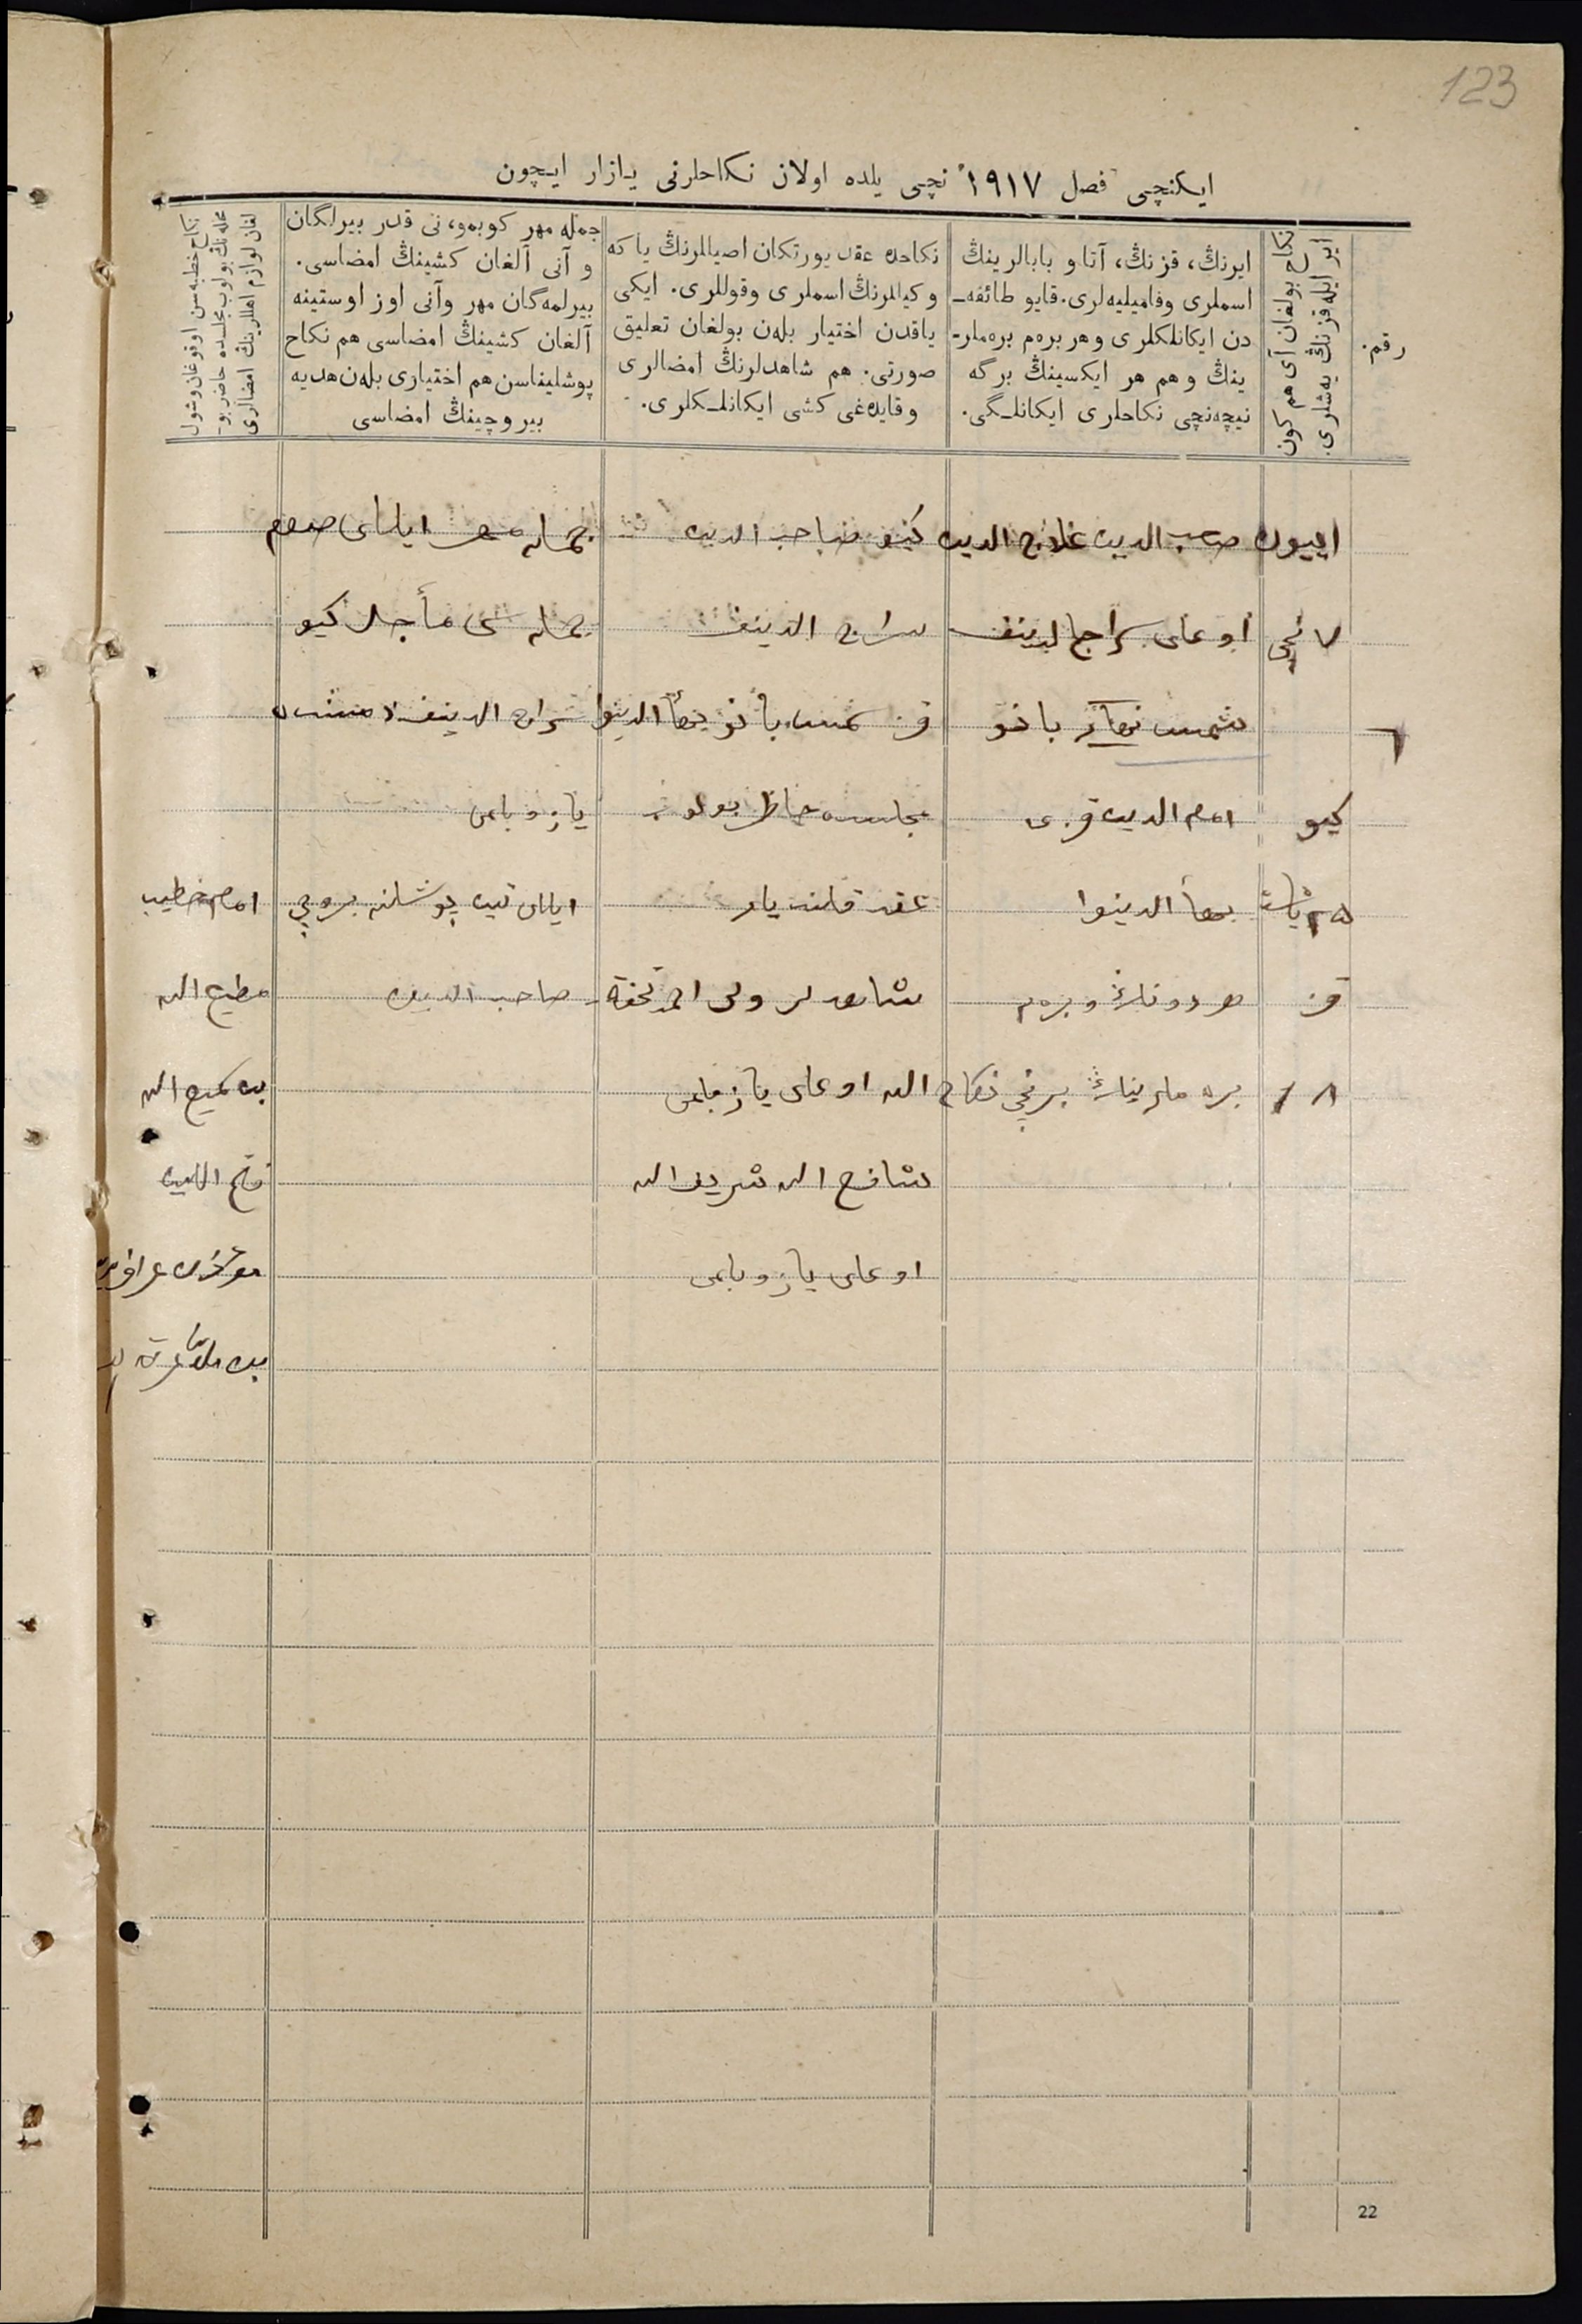 123
ایکنچی فصل ١٩١٧ نچی یلده اولان نکاحلرنی یازار ایچون
رقم.
نکاح بولغان آی هم کون
ایر ایله قزنڭ یه‌شلری.
ایرنڭ، قزنڭ، آتا و بابالرینڭ
اسملری وفامیلیه‌لری. قایو طائفه‌ـ
دن ایکانلکلری و هر بره‌م بره‌ملرـ
ینڭ و هم هر ایکسینڭ برگه
نیچه‌نچی نکاحلری ایکانلـگی.
نکاحده عقد یورتکان اصیللرنڭ یا که
و کیللرنڭ اسملری وقوللری. ایکی
یاقدن اختیار بله‌ن بولغان تعلیق
صورتی. هم شاهدلرنڭ امضالری
وقایده‌غی کشی ایکانلـکلری.
جمله مهر کوبمو، نی قدر بیرلگان
و آنی آلغان کشینڭ امضاسی.
بیرلمه‌گان مهر وآنی اوز اوستینه
آلغان کشینڭ امضاسی هم نکاح
پوشلیناسن هم اختیاری بله‌ن هدیه
بیروچینڭ امضاسی
نکاح خطبه‌سن اوقوغان وشول
محله‌نڭ بولوب مجلسده حاضر بوـ
لغان لوازم اهللرینڭ امضالری
اییون
٧ نچی
٦
کیو
٢٥ یاشت
قز
١٨
صاحب الدین علاج الدین
اوغلی سراج الدینف
شمس نهار بانو
امام الدین قزی
بهأ الدینوا
هر دونڭ وبره‌م
بره ملرینڭ برنچی نکاح
کیو صاحب الدین
سراج الدینف
قز شمس بانو بهأ الدینوا
مجلسده حاظر بولوب
عقد قلندیلر
شاهدلر ولی احمد تحفة
الله اوغلی یازبلمی
شافع الله شریف الله
اوغلی یازوبلمی
جمله مهر ایللی صوم
جمله سی مأجل کیو
سراج الدینف ذمتنده
یازوبلمی
ایللی تین پوشلنه بروچی
صاحب الدین
امام خطیب
مطیع الله
بن سمیع الله
فتح اللین
مؤذن
بن ملا
22